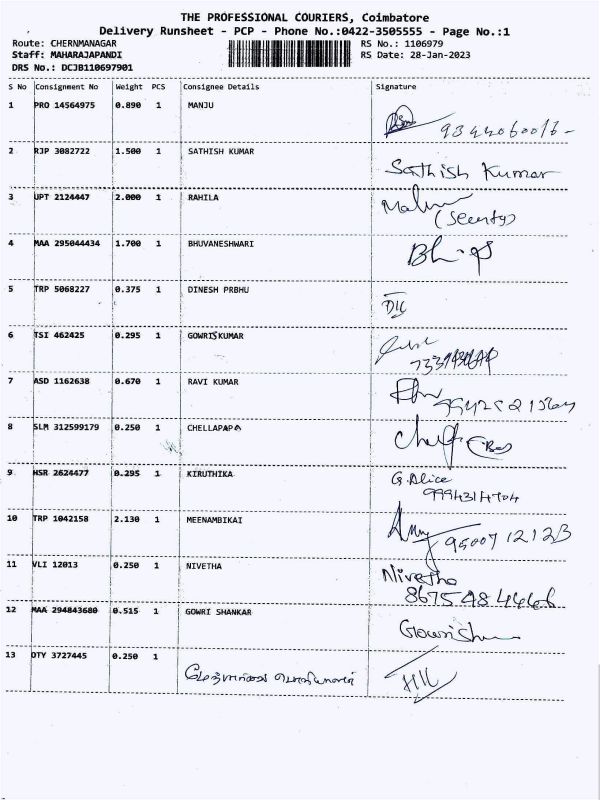 THE PROFESSIONAL COURIERS, Coimbatore
Delivery Runsheet - PCP - Phone No.:0422-3505555 - Page No.:1
Route: CHERNMANAGAR RS No.: 1106979
Staff: MAHARAJAPANDI RS Date: 28-Jan-2023
DRS No.: DCJB110697901
S No Consignment No Weight PCS Consignee Details Signature
1 PRO 14564975 0.890 1 MANJU
2 RJP 3082722 1.500 1 SATHISH KUMAR Sathish Kumar
3 UPT 2124447 2.000 1 RAHILA
4 MAA 295044434 1.700 1 BHUVANESHWARI
5 TRP 5068227 0.375 1 DINESH PRBHU
6 TSI 462425 0.295 1 GOWRISKUMAR
7 ASD 1162638 0.670 1 RAVI KUMAR
8 SLM 312599179 0.250 1 CHELLAPAPA
9 HSR 2624477 0.295 1 KIRUTHIKA G. Alice
9994314704
10 TRP 1042158 2.130 1 MEENAMBIKAI 95007 12123
11 VLI 12013 0.250 1 NIVETHA Nivetha
8675484466
12 MAA 294843680 0.515 1 GOWRI SHANKAR
13 DTY 3727445 0.250 1